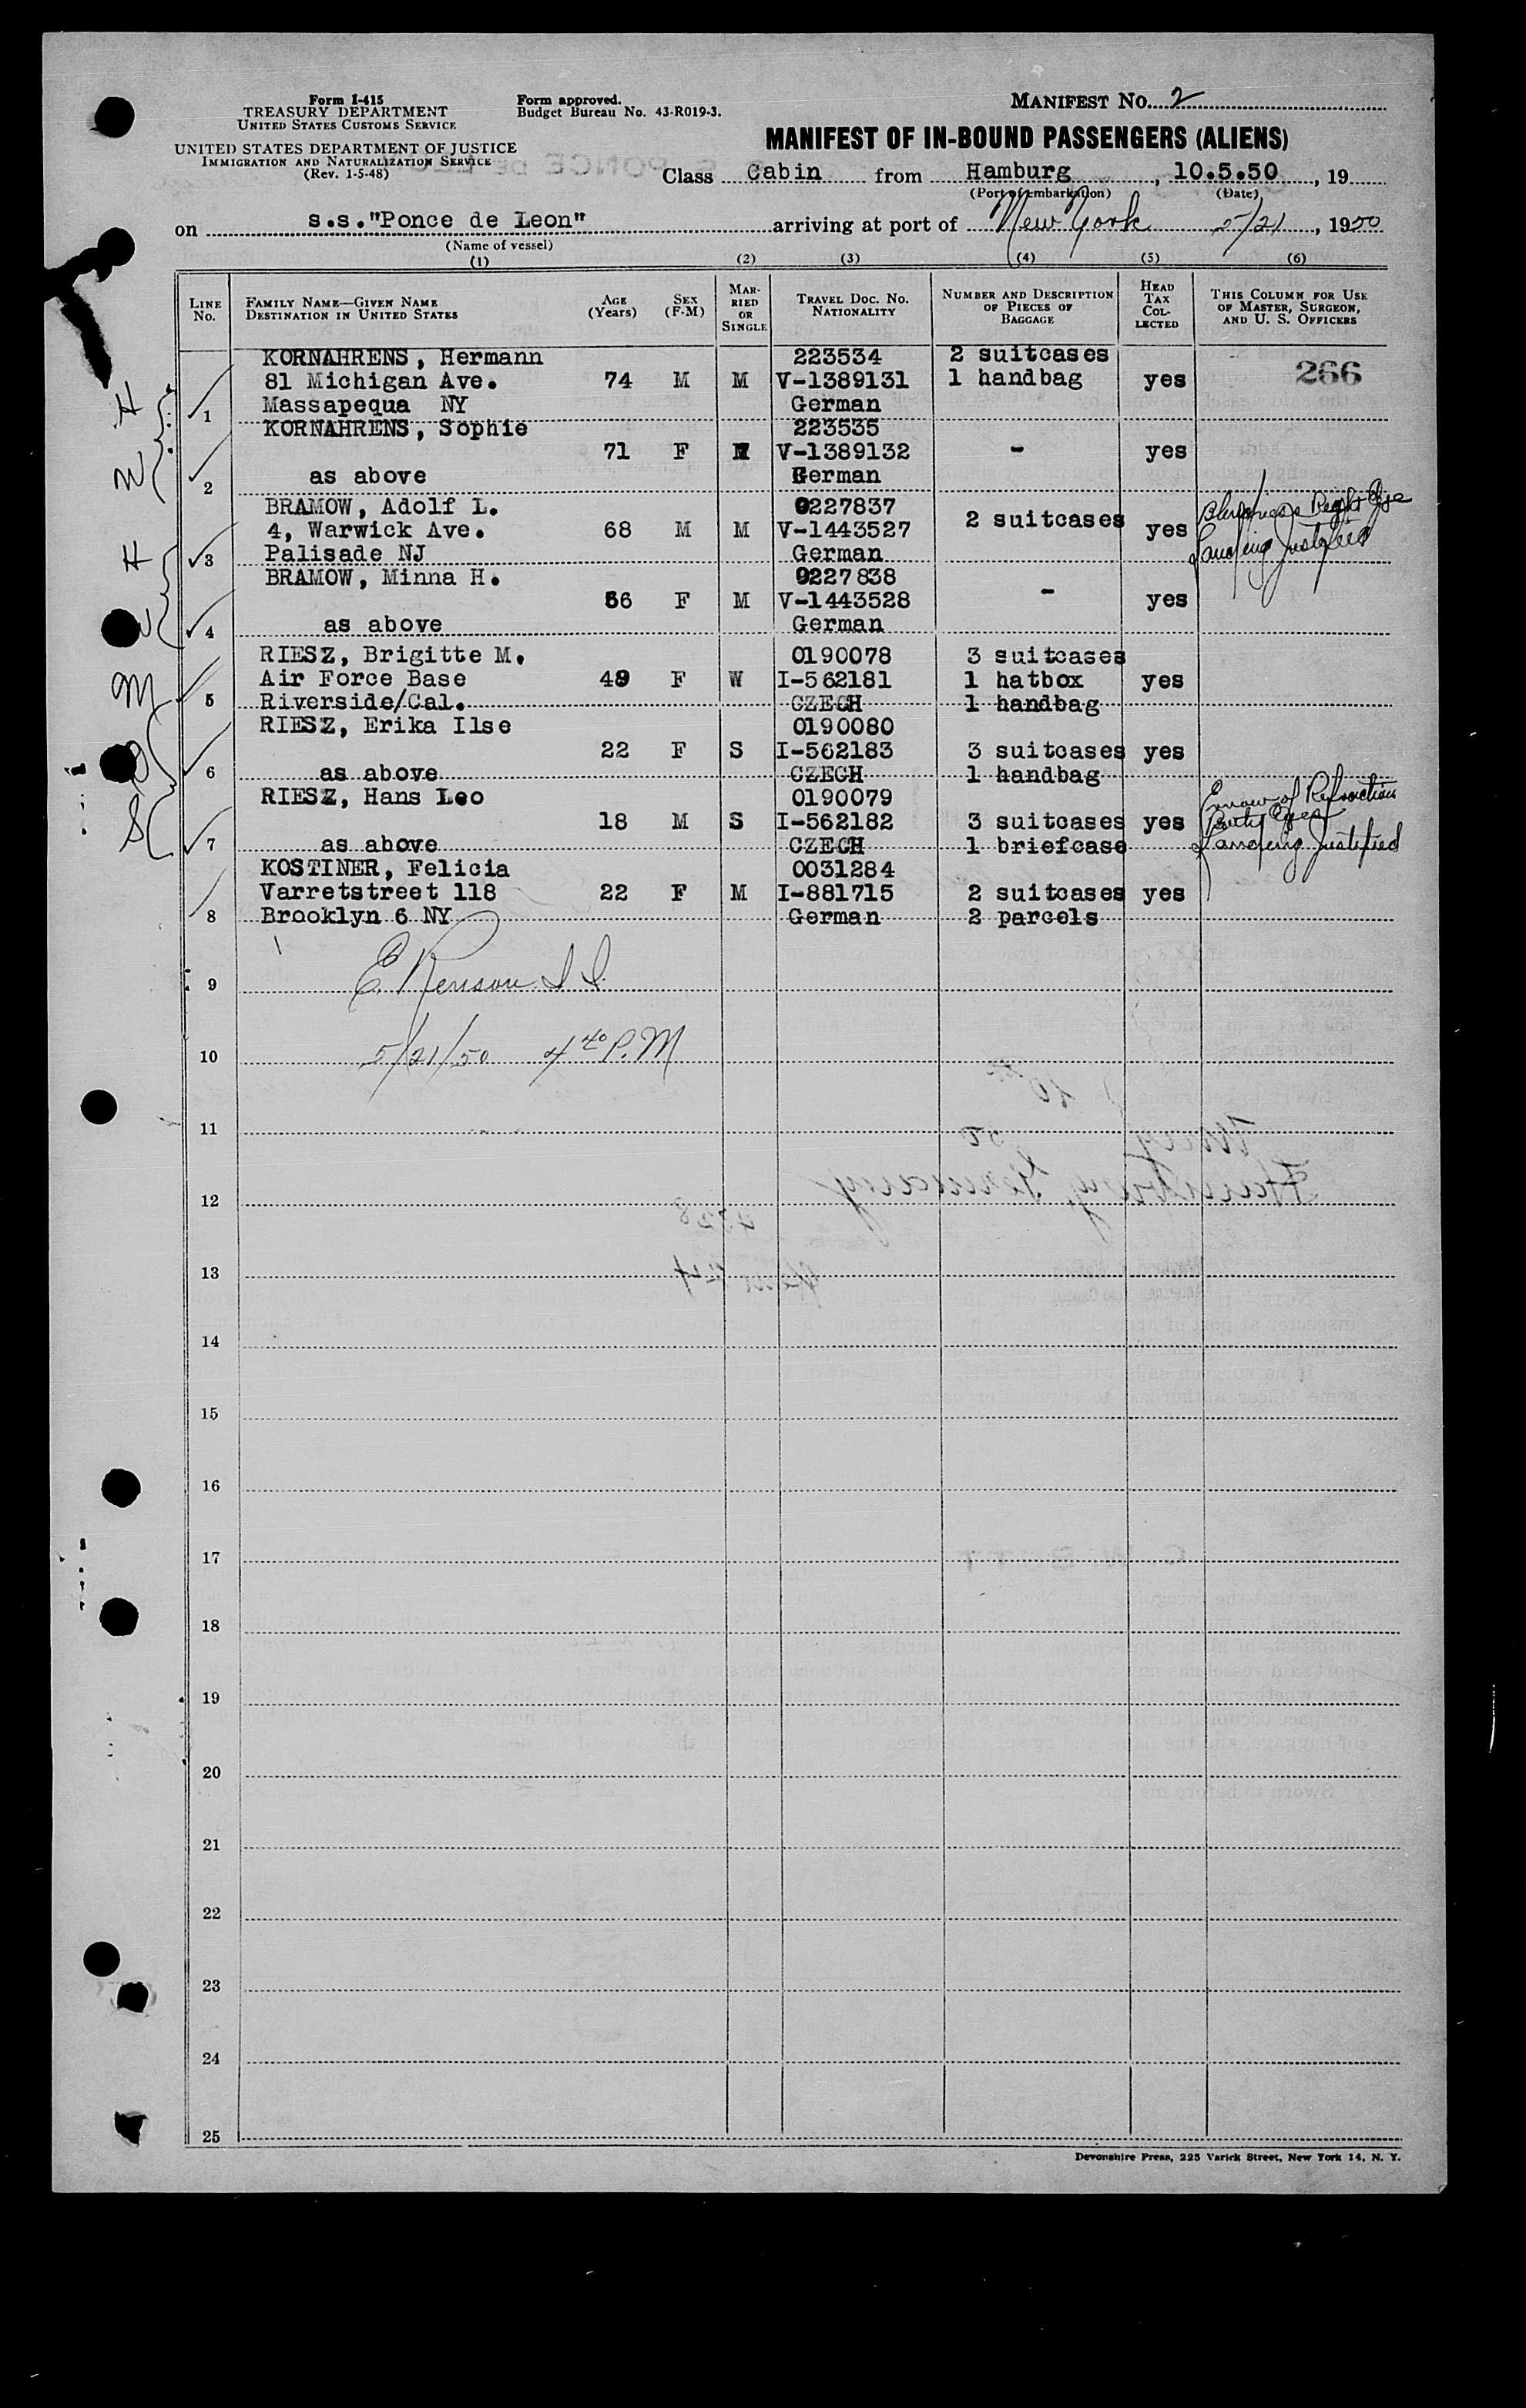 Form I-415
TREASURY DEPARTMENT
UNITED STATES CUSTOMS SERVICE
UNITED STATES DEPARTMENT OF JUSTICE
IMMIGRATION AND NATURALIZATION SERVICE
(Rev. 1-5-48)
Form approved.
Budget Bureau No. 43-R019-3.
MANIFEST No. 2
MANIFEST OF IN-BOUND PASSENGERS (ALIENS)
Class Cabin from Hamburg, 10.5.50, 19
(Port of embarkation) (Date)
on s.s."Ponce de Leon" arriving at port of New York 5/21, 1950
(Name of vessel)
(1) (2) (3) (4) (5) (6)
LINE No. FAMILY NAME—GIVEN NAME DESTINATION IN UNITED STATES AGE (Years) SEX (F-M) MARRIED OR SINGLE TRAVEL DOC. NO. NATIONALITY NUMBER AND DESCRIPTION OF PIECES OF BAGGAGE HEAD TAX COLLECTED THIS COLUMN FOR USE OF MASTER, SURGEON, AND U. S. OFFICERS
KORNAHRENS, Hermann 223534 2 suitcases 266
H 81 Michigan Ave. 74 M M V-1389131 1 handbag yes
1 Massapequa NY German
KORNAHRENS, Sophie 223535
W 71 F M V-1389132 - yes
2 as above German
BRAMOW, Adolf L. 0227837 Right Eye
H 4, Warwick Ave. 68 M M V-1443527 2 suitcases yes Landing Justified
3 Palisade NJ German
BRAMOW, Minna H. 0227838
W 66 F M V-1443528 - yes
4 as above German
RIESZ, Brigitte M. 0190078 3 suitcases
M Air Force Base 49 F W I-562181 1 hatbox yes
5 Riverside/Cal. CZECH 1 handbag
RIESZ, Erika Ilse 0190080
D 22 F S I-562183 3 suitcases yes
6 as above CZECH 1 handbag
RIESZ, Hans Leo 0190079 Error of Refraction
S 18 M S I-562182 3 suitcases yes Both Eyes
7 as above CZECH 1 briefcase Landing Justified
KOSTINER, Felicia 0031284
Varretstreet 118 22 F M I-881715 2 suitcases yes
8 Brooklyn 6 NY German 2 parcels
9 E. Renison I I
10 5/21/50 4 40 P.M
11
12
13
14
15
16
17
18
19
20
21
22
23
24
25
Devonshire Press, 225 Varick Street, New York 14, N. Y.